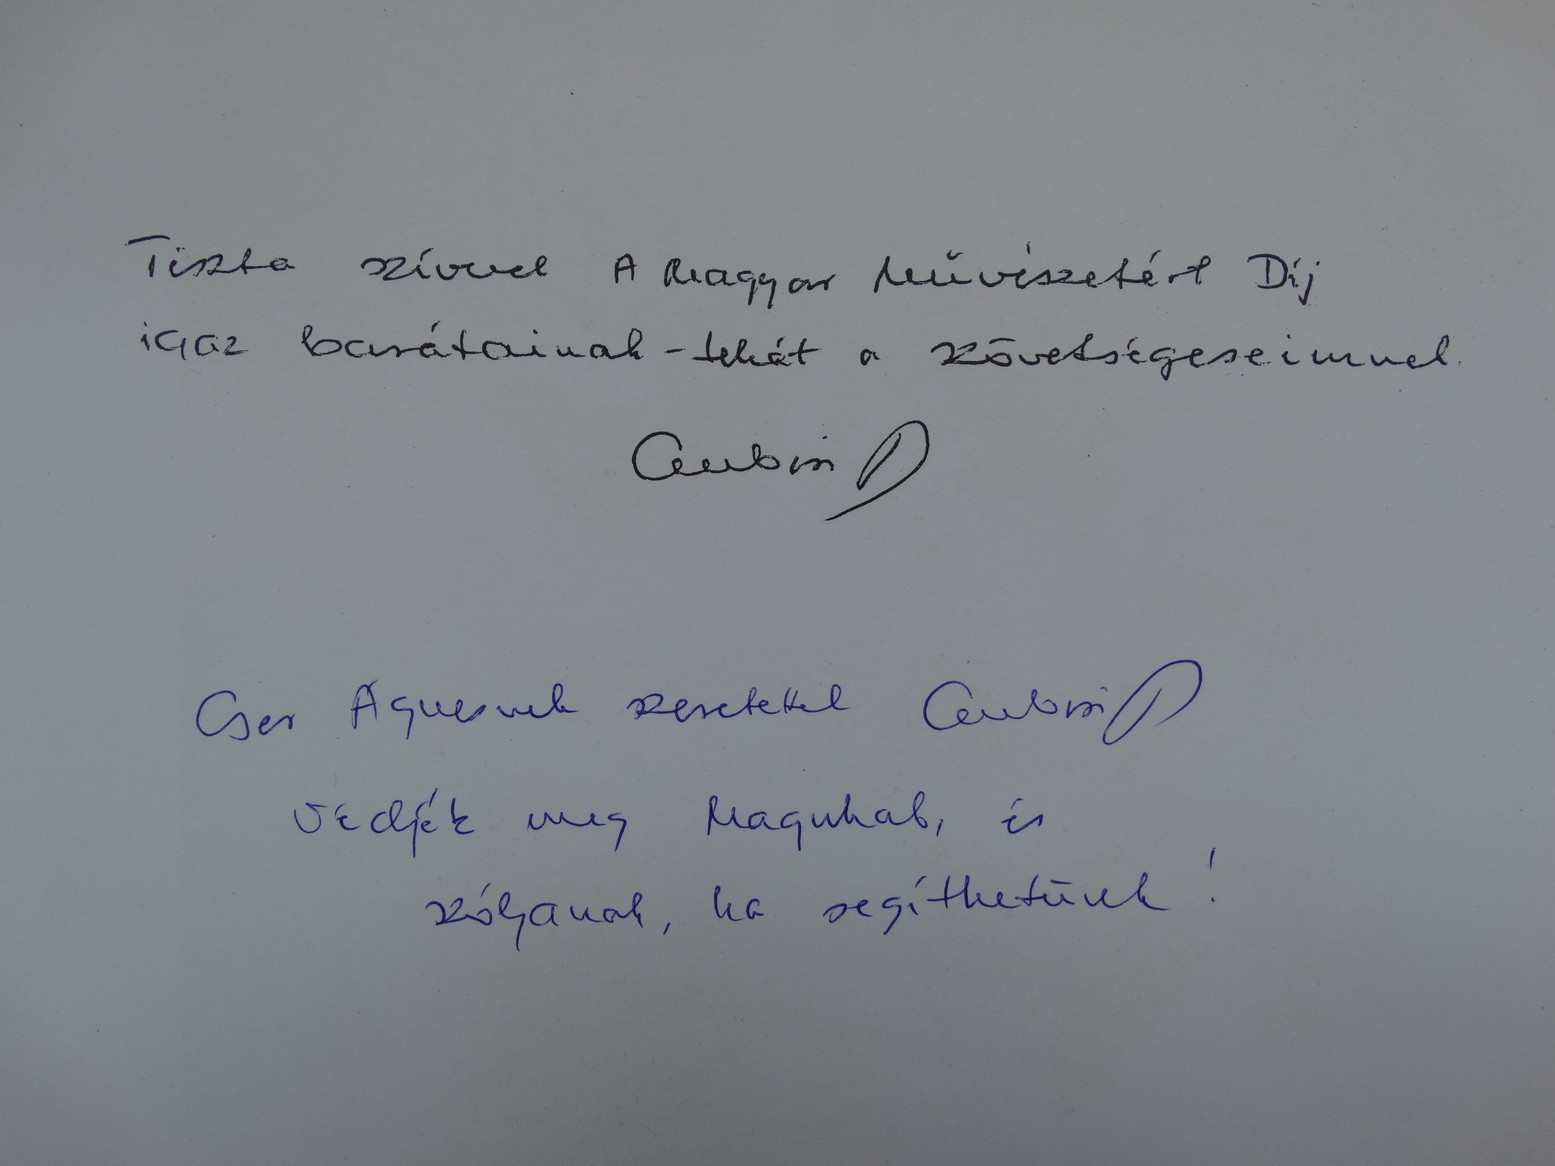 Tiszta szívvel A Magyar Művészetért Díj
igaz barátainak - tehát a szövetségeseimnek.
Gubcsi
Cser Ágnesnek szeretettel Gubcsi
Védjék meg Magukat, és
szóljanak, ha segíthetünk!